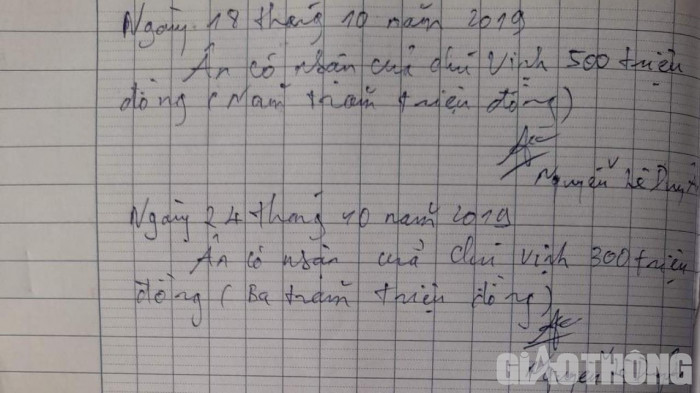 Ngày 18 tháng 10 năm 2019
Ân có nhận của chú Vịnh 500 triệu
đồng (Năm trăm triệu đồng)
Nguyễn Lê
Ngày 24 tháng 10 năm 2019
Ân có nhận của chú Vịnh 300 triệu
đồng (Ba trăm triệu đồng)
GIAOTHÔNG
Nguyễn